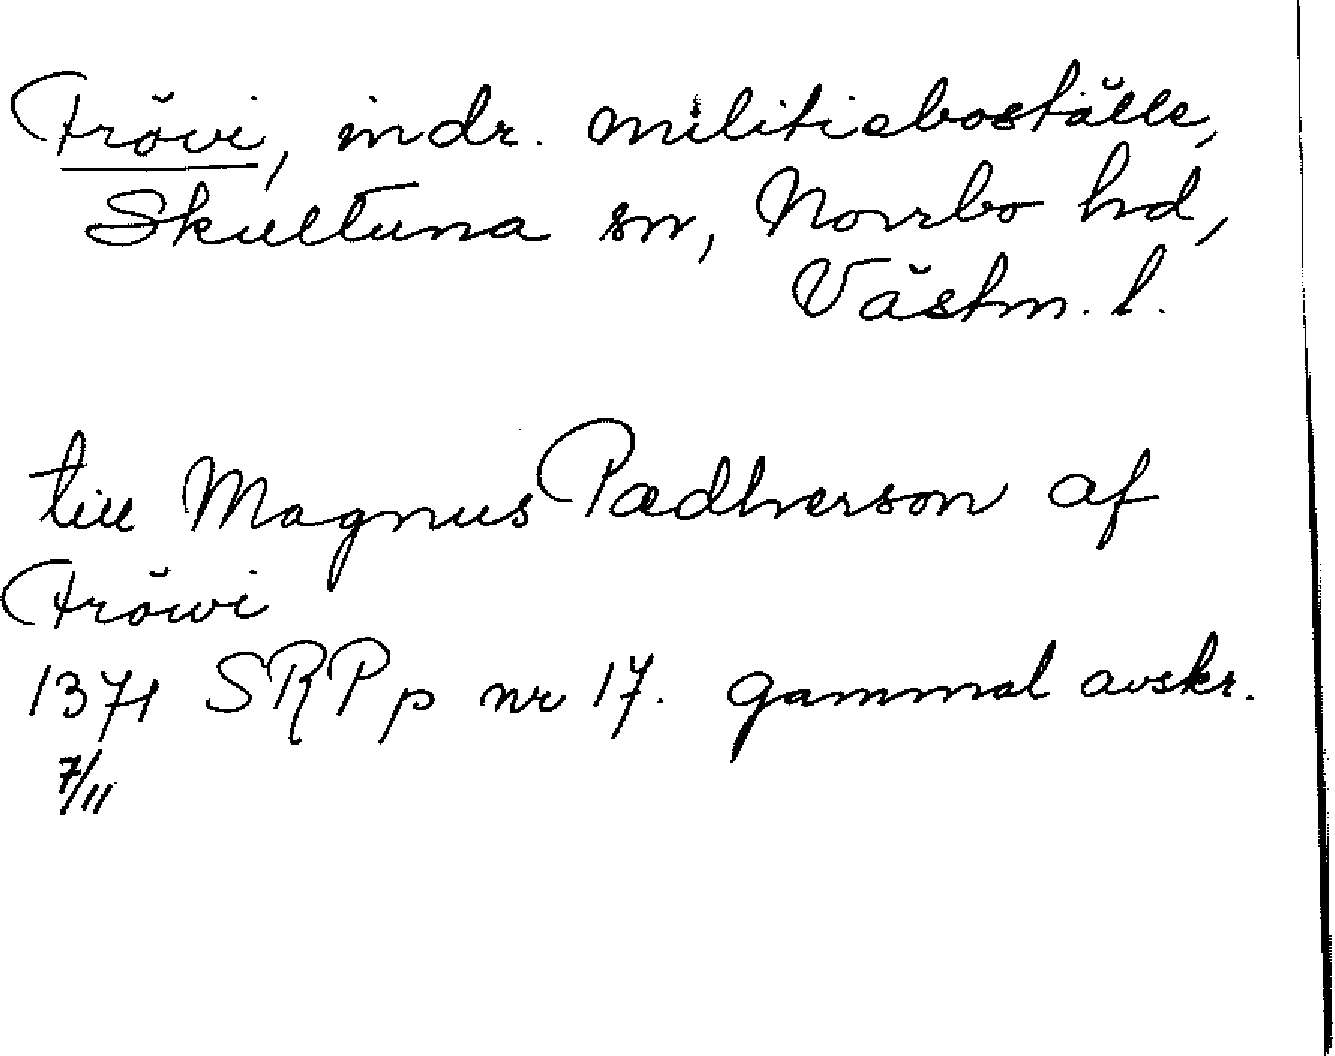 Frövi, indr. militieboställe,
Skultuna sn, Norrbo hd,
Västm. l.
till Magnus Pædherson af
Fröwi
1371 SRPp nr 17. gammal avskr.
7/11